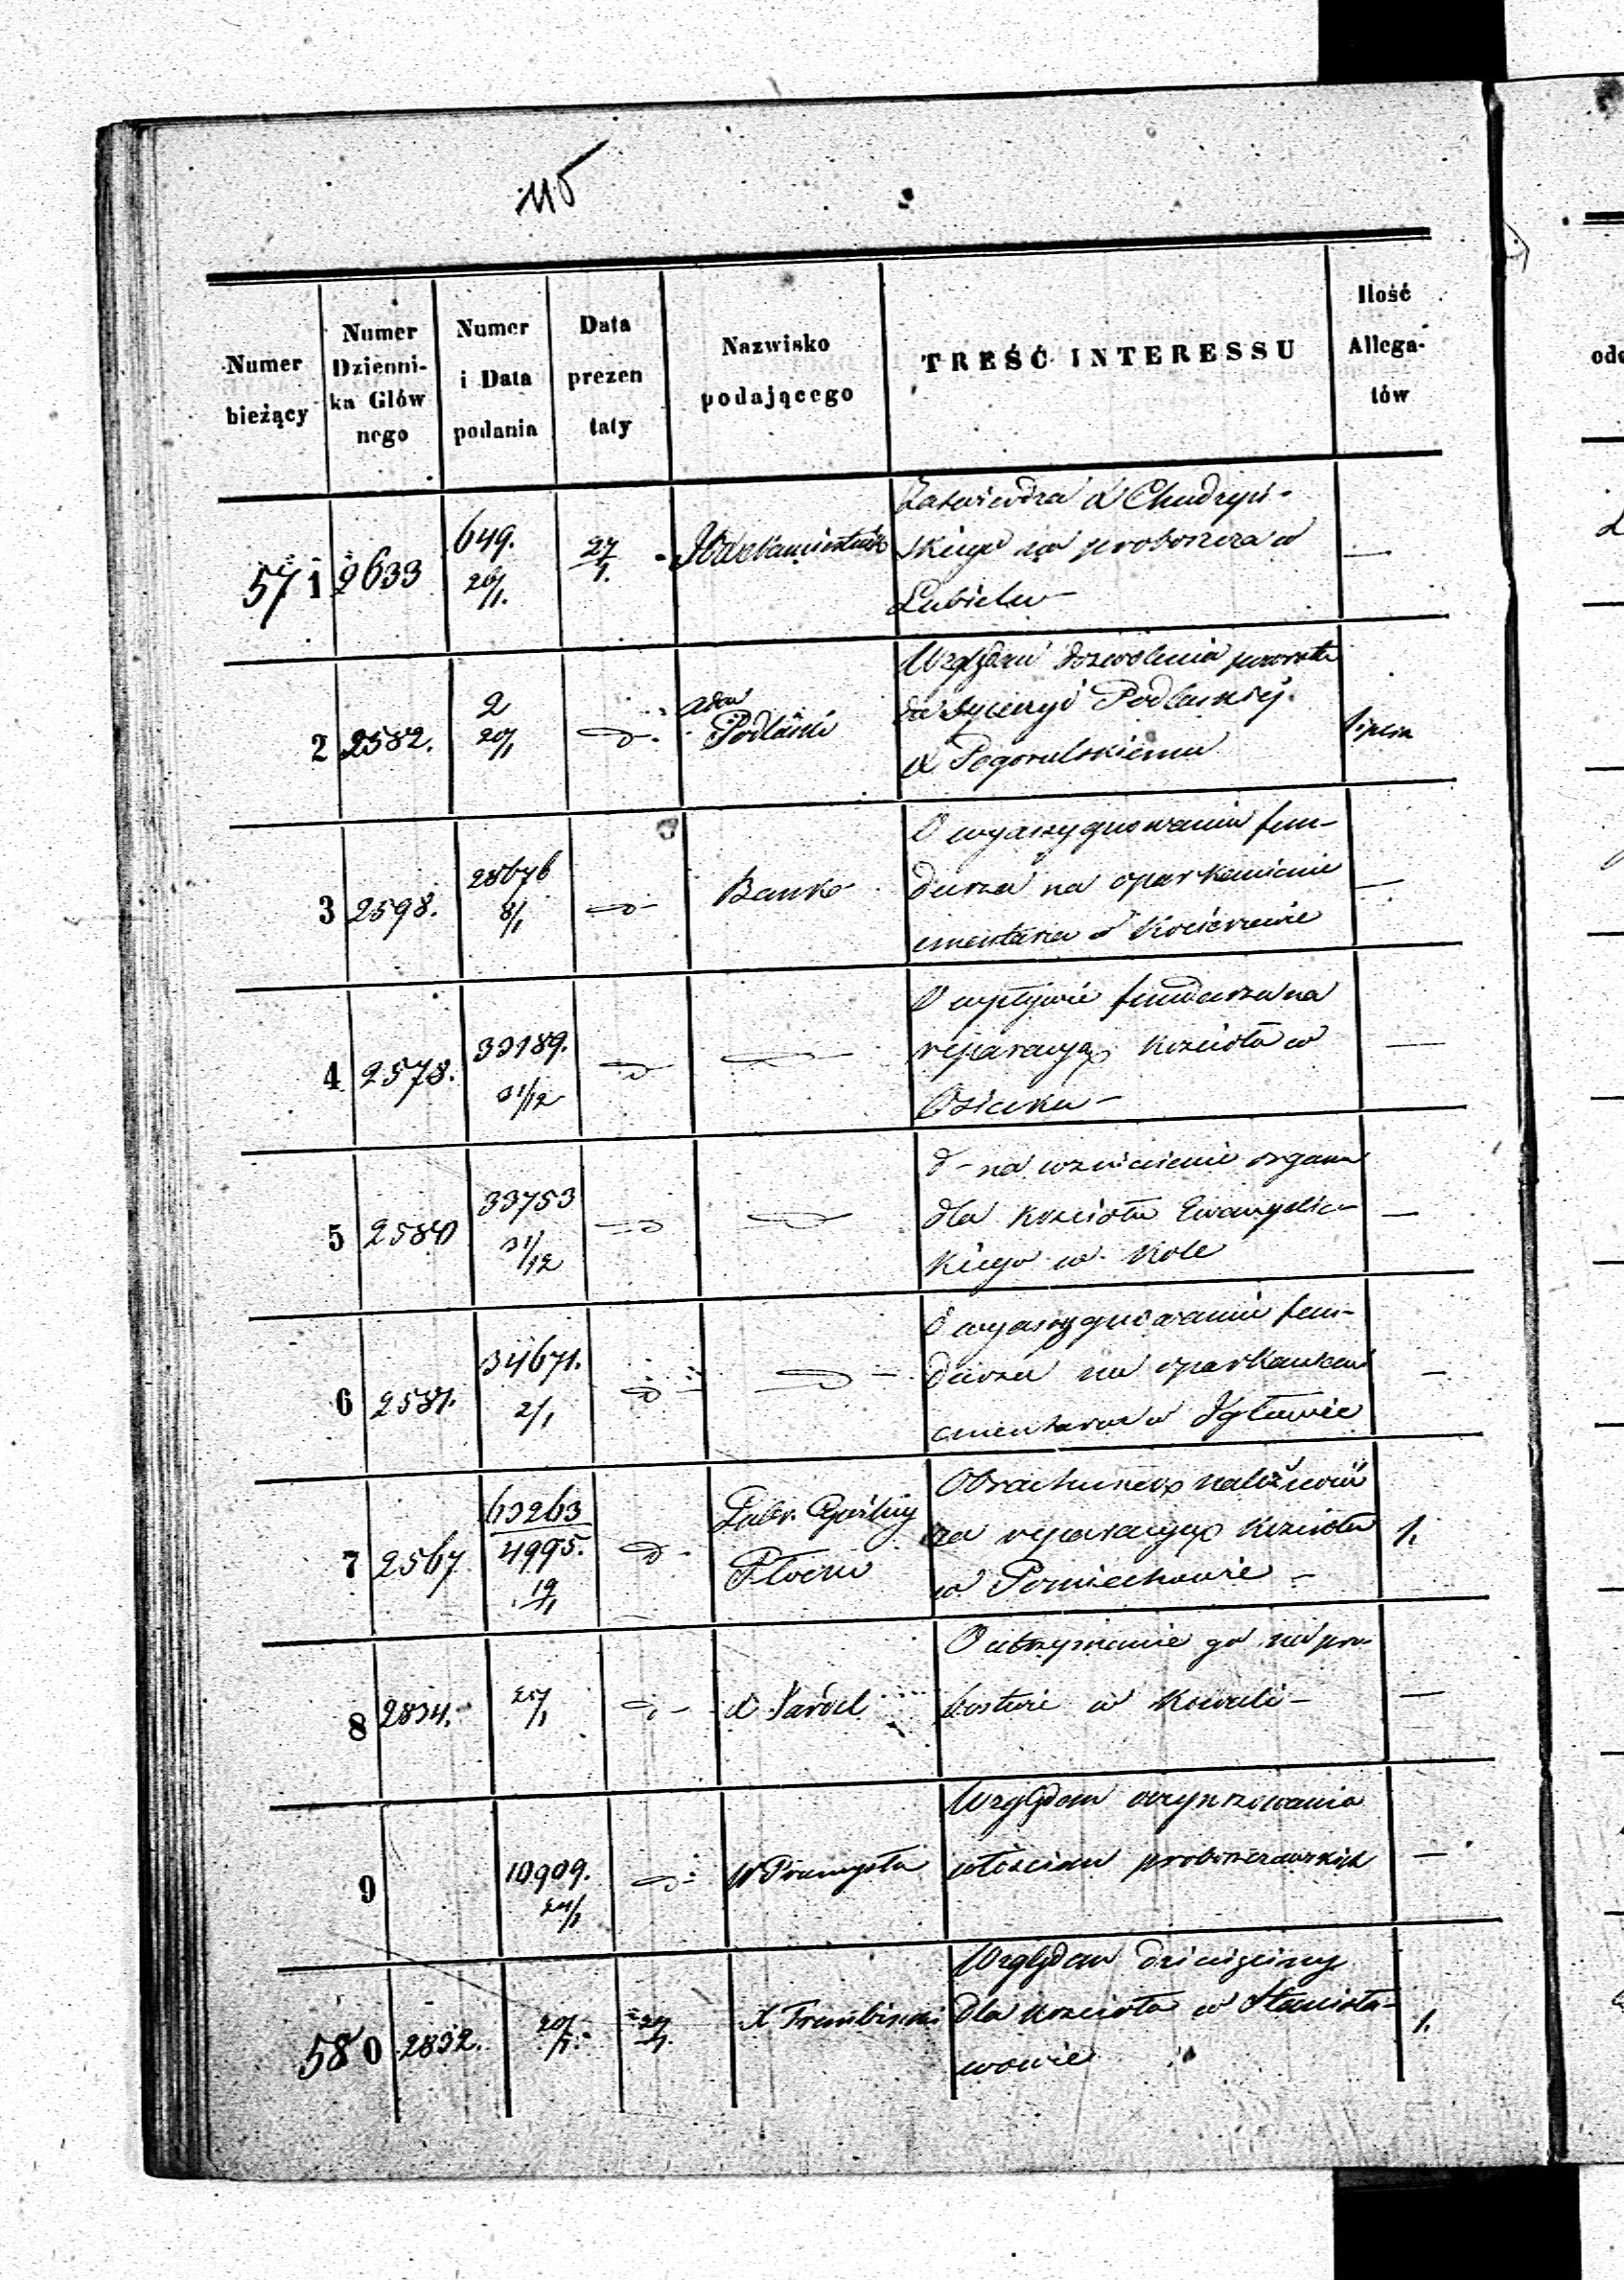 115
Numer
bieżący
Numer
Dzienni-
ka Głów
nego
Numer
i Data
podania
Data
prezen
taty
Nazwisko
podającego
TREŚĆ INTERESSU
Ilość
Allega-
tów
571
2633
649.
26/1.
27/1.
Zatwierdza X Chudzyń-
skiego na proboszcza w
Lubielu —
—
2
2582.
2
20/1
d.
Podlaski
Względem dozwolenia powrotu
do Dyecezyi Podlaskiej
X Pogorulskiemu
3
2598.
28676
8/1
d
Banko
O wyassygnowaniu fun-
duszu na oparkanienie
cmentarza w Kościerzewie
—
4
2578.
33189.
31/12
d
d
O wpływie funduszu na
reparacyą kościoła w
Osiecku —
—
5
2580
33753
31/12
d
d
d — na wzniesienie organu
dla kościoła Ewangelic-
kiego w Kole
—
6
2581.
34671.
2/1
d
d
O wyassygnowaniu fun-
duszu na oparkanienie
cmentarza w Iłław­ie
—
7
2567
63263
4995.
19/1
d
Gubr. Cywilny
Płocki
Obrachunek należności
za reparacyą kościoła
w Pomiechowie —
1.
8
2834.
25/1
d
X
O utrzymanie go na pro-
bostwie w Kowali —
—
9
10909.
24/1
d
W Przemysłu
Względem oczynszowania
włościan proboszczowskich
—
580
2832.
20/1.
27/1.
X Trembiński
Względem dziesięciny
dla kościoła w Stanisła-
wowie
1.